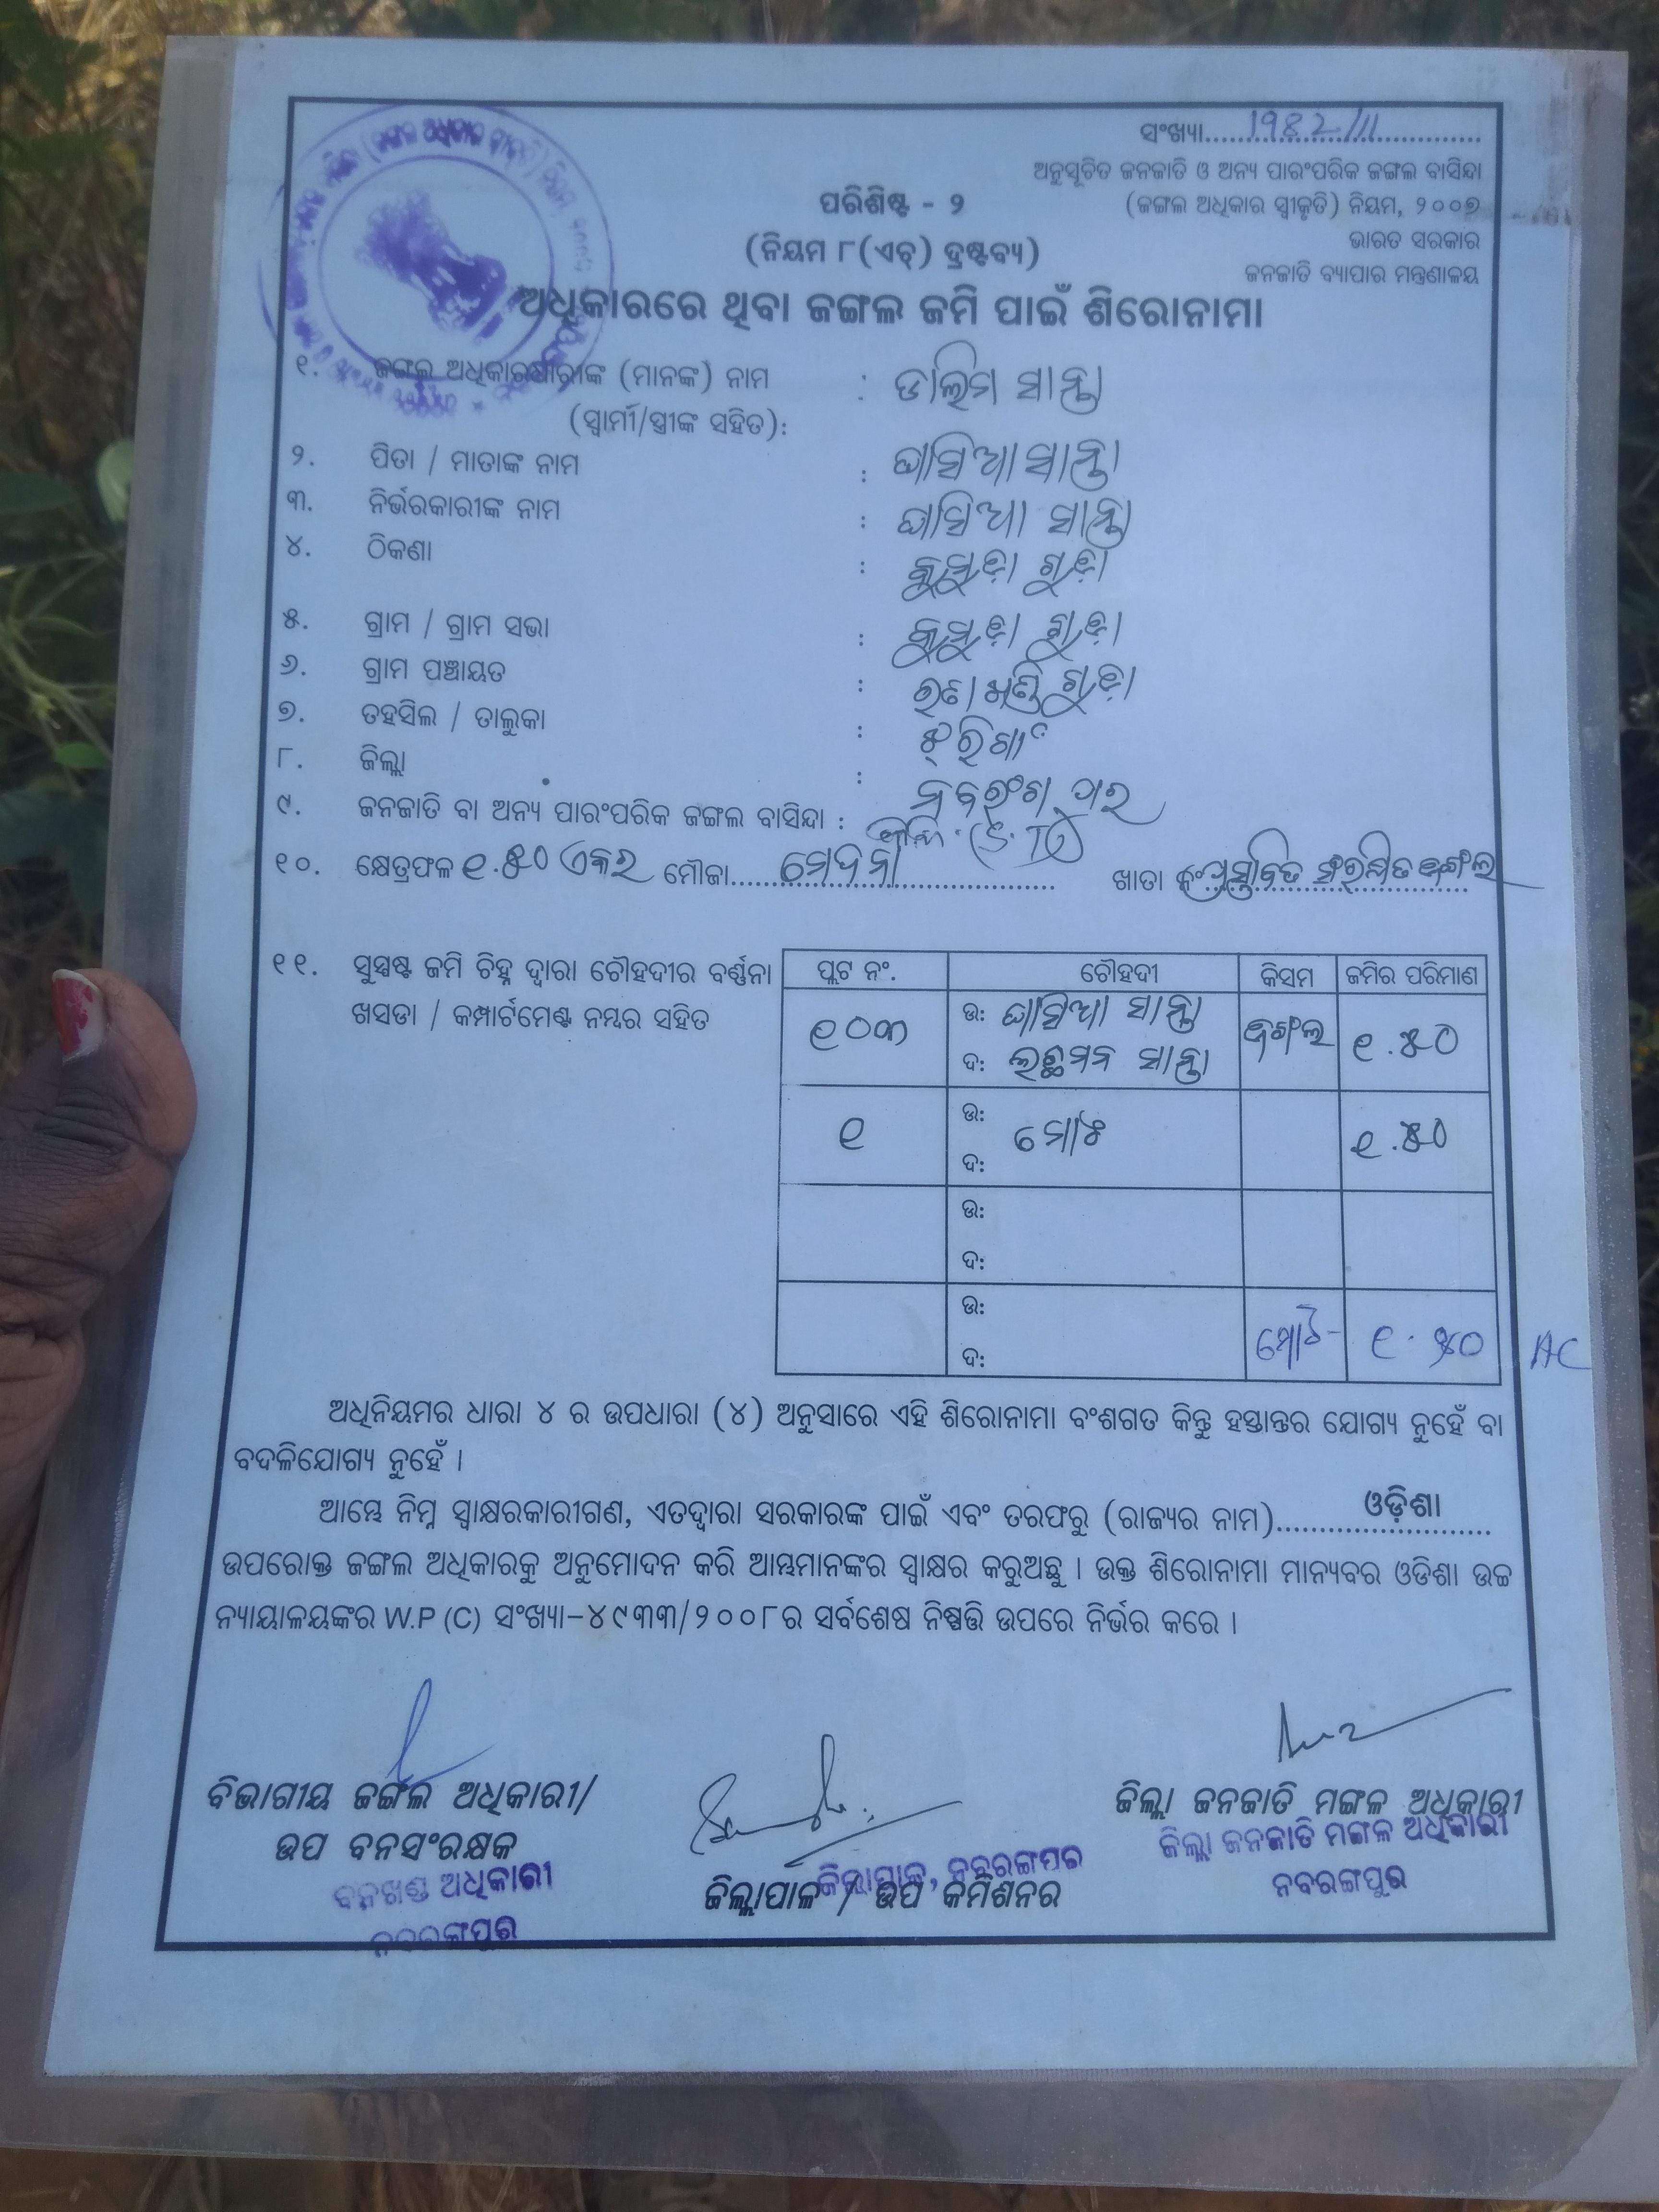 ସଂଖ୍ୟା......1982/11......
ଅନୁସୂଚିତ ଜନଜାତି ଓ ଅନ୍ୟ ପାରଂପରିକ ଜଙ୍ଗଲ ବାସିନ୍ଦା
(ଜଙ୍ଗଲ ଅଧିକାର ସ୍ୱୀକୃତି) ନିୟମ, ୨୦୦୭
ଭାରତ ସରକାର
ଜନଜାତି ବ୍ୟାପାର ମନ୍ତ୍ରଣାଳୟ
ପରିଶିଷ୍ଟ - ୨
(ନିୟମ ୮(ଏଚ୍) ଦ୍ରଷ୍ଟବ୍ୟ)
ଅଧିକାରରେ ଥିବା ଜଙ୍ଗଲ ଜମି ପାଇଁ ଶିରୋନାମା
୧. ଜଙ୍ଗଲ ଅଧିକାରଧାରୀଙ୍କ (ମାନଙ୍କ) ନାମ : ଡାଲିମ ସାନ୍ତା
(ସ୍ୱାମୀ/ସ୍ତ୍ରୀଙ୍କ ସହିତ):
୨. ପିତା / ମାତାଙ୍କ ନାମ : ଘାସିଆ ସାନ୍ତା
୩. ନିର୍ଭରକାରୀଙ୍କ ନାମ : ଘାସିଆ ସାନ୍ତା
୪. ଠିକଣା : କୁମୁଡ଼ା ଗୁଡ଼ା
୫. ଗ୍ରାମ / ଗ୍ରାମ ସଭା : କୁମୁଡ଼ା ଗୁଡ଼ା
୬. ଗ୍ରାମ ପଞ୍ଚାୟତ : ଗୁଡ଼ା
୭. ତହସିଲ / ତାଲୁକା : ଝରିଗାଁ
୮. ଜିଲ୍ଲା : ନବରଂଗପୁର
୯. ଜନଜାତି ବା ଅନ୍ୟ ପାରଂପରିକ ଜଙ୍ଗଲ ବାସିନ୍ଦା : (S.T)
୧୦. କ୍ଷେତ୍ରଫଳ ୧.୫୦ ଏକର ମୌଜା......ମେଦନା...... ଖାତା ନଂ ପ୍ରସ୍ତାବିତ ସଂରକ୍ଷିତ ଜଙ୍ଗଲ
୧୧. ସୁସ୍ପଷ୍ଟ ଜମି ଚିହ୍ନ ଦ୍ୱାରା ଚୌହଦୀର ବର୍ଣ୍ଣନା
ଖସଡା / କମ୍ପାର୍ଟମେଣ୍ଟ ନମ୍ବର ସହିତ
ପ୍ଲଟ ନଂ. ଚୌହଦୀ କିସମ ଜମିର ପରିମାଣ
୧୦୩ ଉ: ଘାସିଆ ସାନ୍ତା ଜଙ୍ଗଲ ୧.୫୦
ଦ: ଲଛମନ ସାନ୍ତା
୧ ଉ: ମୋଟ ୧.୫୦
ଦ:
ଉ:
ଦ:
ଉ: ମୋଟ- ୧.୫୦ AC
ଦ:
ଅଧିନିୟମର ଧାରା ୪ ର ଉପଧାରା (୪) ଅନୁସାରେ ଏହି ଶିରୋନାମା ବଂଶଗତ କିନ୍ତୁ ହସ୍ତାନ୍ତର ଯୋଗ୍ୟ ନୁହେଁ ବା
ବଦଳିଯୋଗ୍ୟ ନୁହେଁ ।
ଆମ୍ଭେ ନିମ୍ନ ସ୍ୱାକ୍ଷରକାରୀଗଣ, ଏତଦ୍ୱାରା ସରକାରଙ୍କ ପାଇଁ ଏବଂ ତରଫରୁ (ରାଜ୍ୟର ନାମ)......ଓଡ଼ିଶା......
ଉପରୋକ୍ତ ଜଙ୍ଗଲ ଅଧିକାରକୁ ଅନୁମୋଦନ କରି ଆମ୍ଭମାନଙ୍କର ସ୍ୱାକ୍ଷର କରୁଅଛୁ । ଉକ୍ତ ଶିରୋନାମା ମାନ୍ୟବର ଓଡିଶା ଉଚ୍ଚ
ନ୍ୟାୟାଳୟଙ୍କର W.P (C) ସଂଖ୍ୟା-୪୯୩୩/୨୦୦୮ର ସର୍ବଶେଷ ନିଷ୍ପତ୍ତି ଉପରେ ନିର୍ଭର କରେ ।
ବିଭାଗୀୟ ଜଙ୍ଗଲ ଅଧିକାରୀ/
ଉପ ବନସଂରକ୍ଷକ
ବନଖଣ୍ଡ ଅଧିକାରୀ
ନବରଙ୍ଗପୁର
ଜିଲ୍ଲାପାଳ, ନବରଙ୍ଗପୁର
ଜିଲ୍ଲାପାଳ / ଉପ କମିଶନର
ଜିଲ୍ଲା ଜନଜାତି ମଙ୍ଗଳ ଅଧିକାରୀ
ଜିଲ୍ଲା ଜନଜାତି ମଙ୍ଗଳ ଅଧିକାରୀ
ନବରଙ୍ଗପୁର